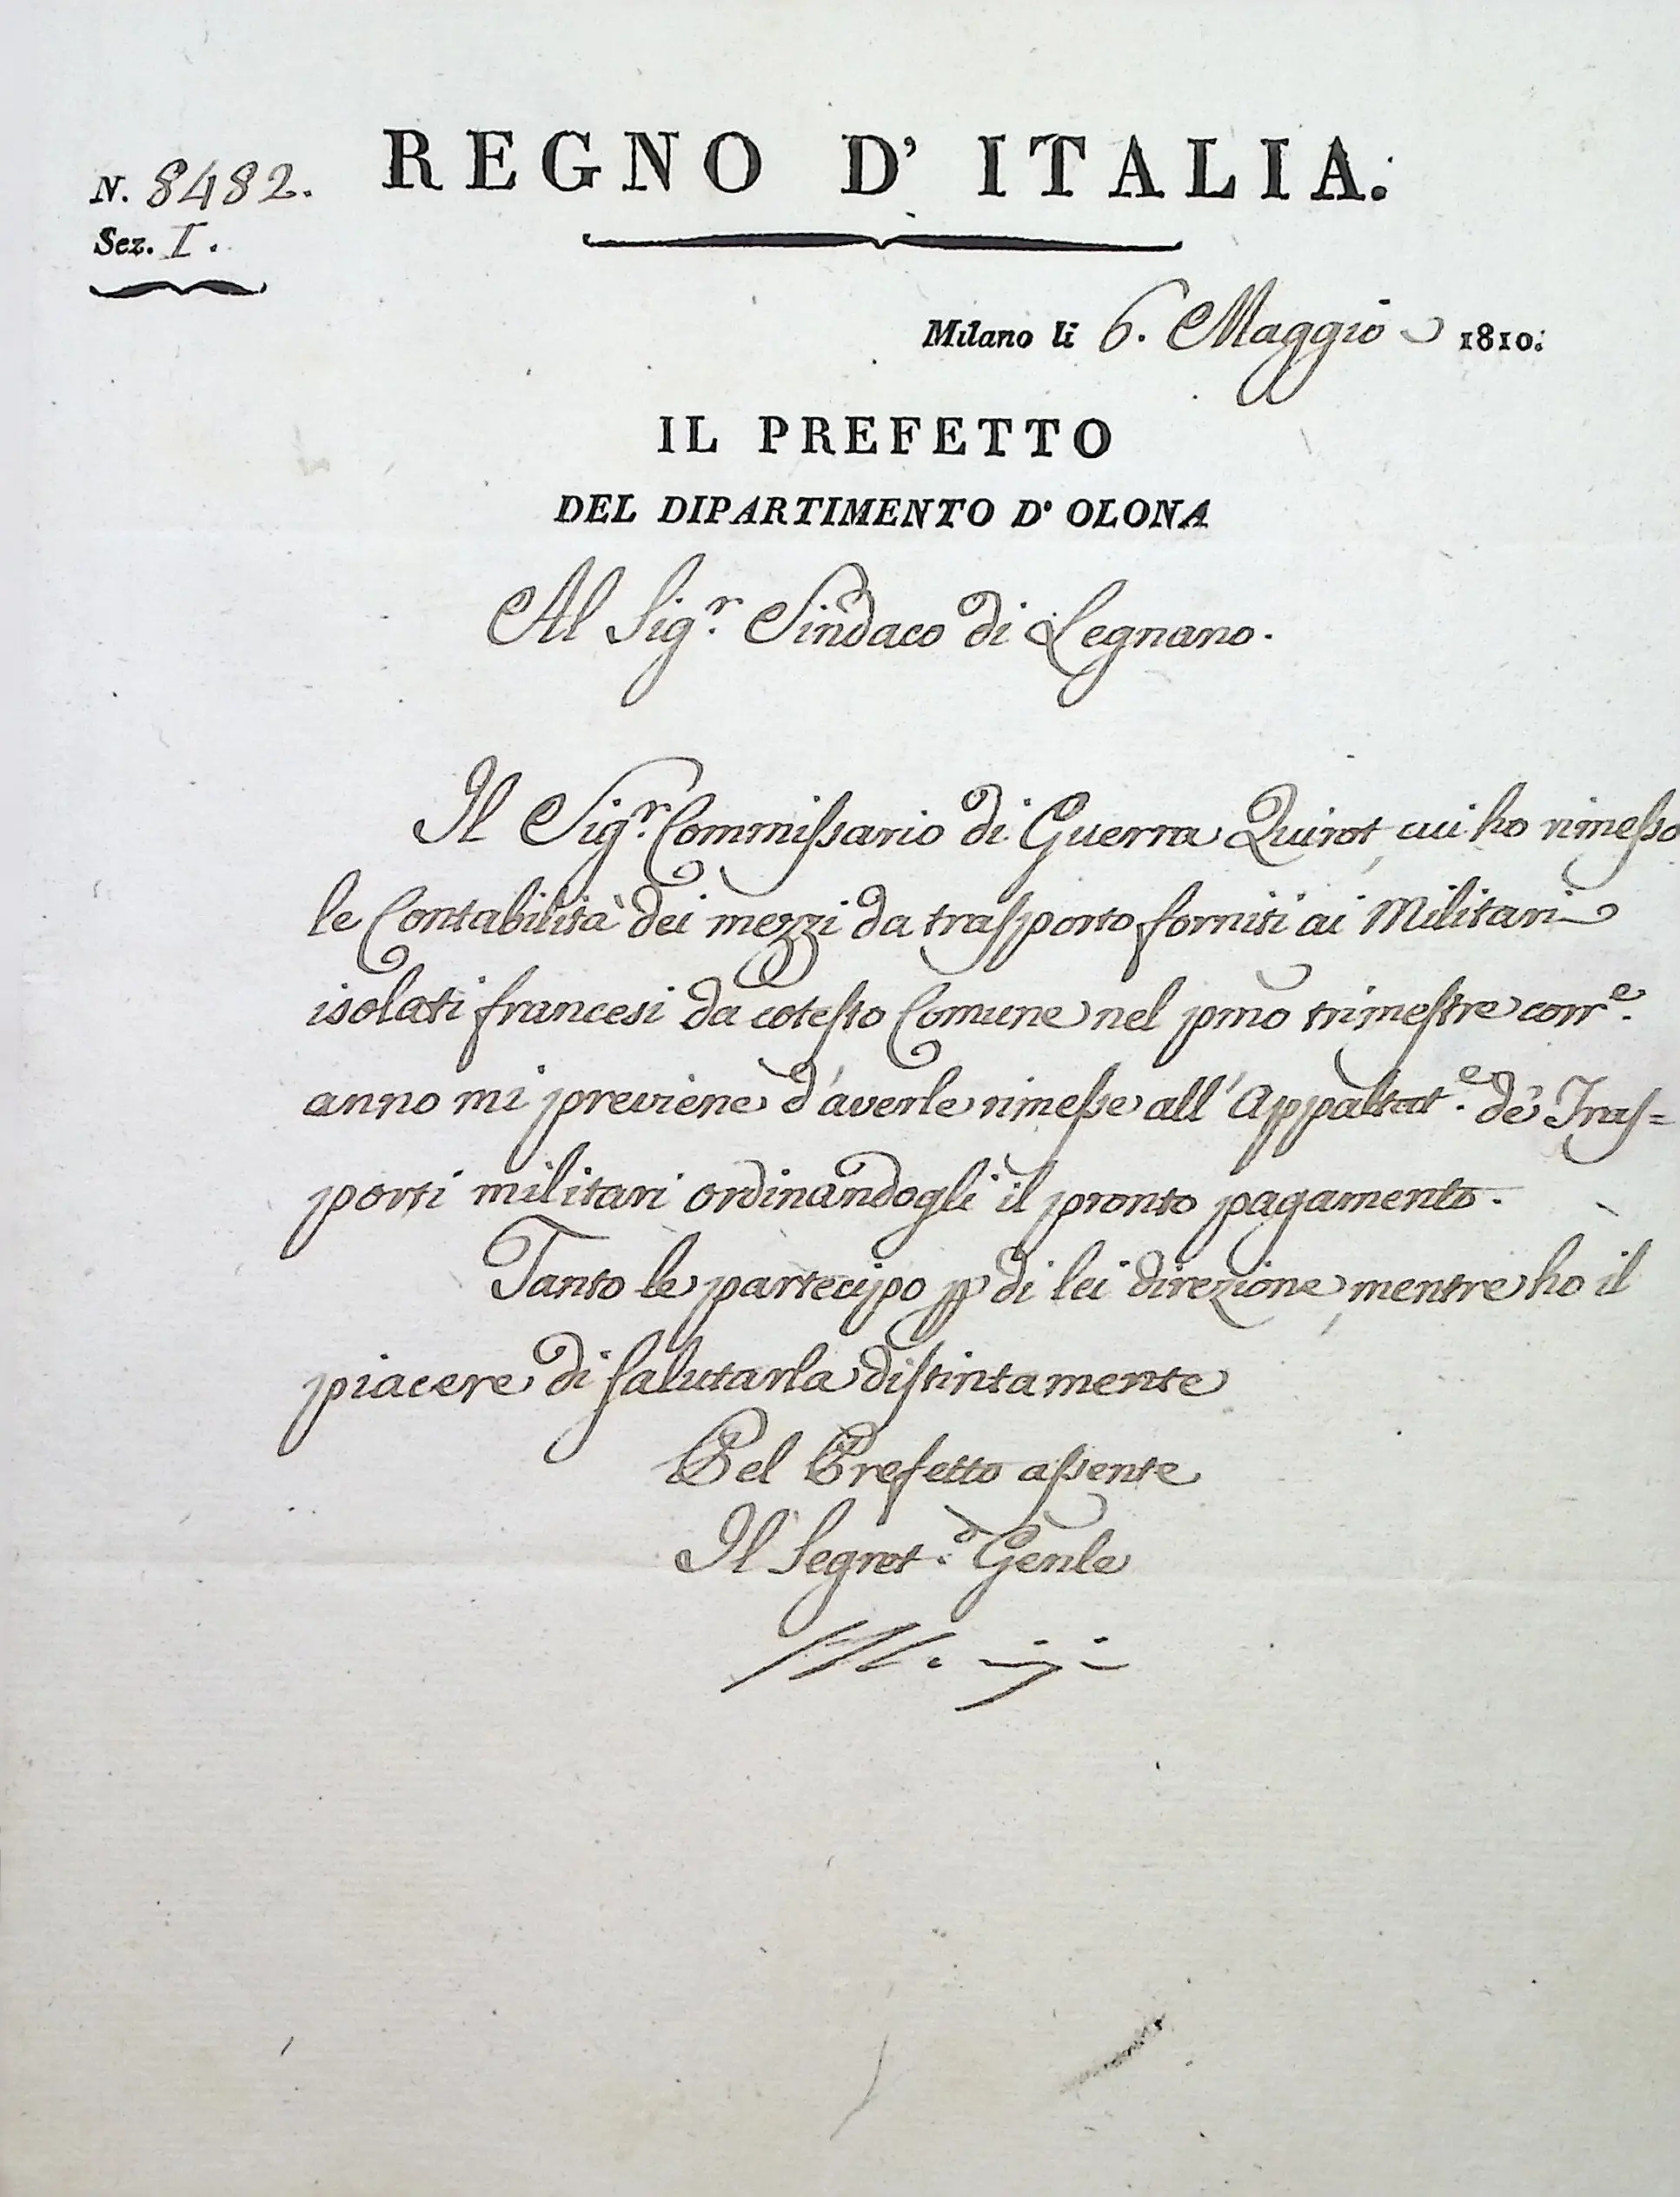 N. 8482.
REGNO D' ITALIA.
Sez. I.
Milano li 6. Maggio 1810.
IL PREFETTO
DEL DIPARTIMENTO D' OLONA
Al Sig.r Sindaco di Legnano.
Il Sig.r Commissario di Guerra Quirot, cui ho rimesso
le Contabilità dei mezzi da trasporto forniti ai Militari
isolati francesi da cotesto Comune nel pmo trimestre corr.e
anno mi previene d'averle rimesse all'Appaltat.e de' Tras=
porti militari ordinandogli il pronto pagamento.
Tanto le partecipo pp di lei direzione, mentre ho il
piacere di salutarla distintamente
Pel Prefetto assente
Il Segret.o Genle